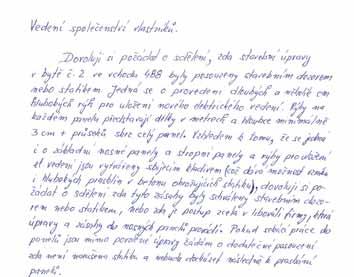 Vedení společenství vlastníků.
Dovoluji si požádat o sdělení, zda stavební úpravy
v bytě č. 2 ve vchodu 488 byly posouzeny stavebním dozorem
nebo statikem. Jedná se o provedení dlouhých a několik cm
hlubokých rýh pro uložení nového elektrického vedení. Rýhy na
každém panelu představují délky v metrech a hloubce minimálně
3 cm + průsek skrz celý panel. Vzhledem k tomu, že se jedná
i o základní nosné panely a stropní panely a rýhy pro uložení
el. vedení jsou vytvářeny sbíjecím kladivem (což dává možnost vzniku
i hlubokých prasklin v betonu ohrožujících statiku), dovoluji si po-
žádat o sdělení zda tyto zásahy byly schváleny stavebním dozo-
rem nebo statikem, nebo zda je postup zcela v libovůli firmy, která
úpravy a zásahy do nosných panelů provádí. Pokud snad práce do
panelů jsou mimo povolené úpravy žádám o dodatečné posouzení
zda není narušena statika a nebude docházet následně k praskání
panelů.